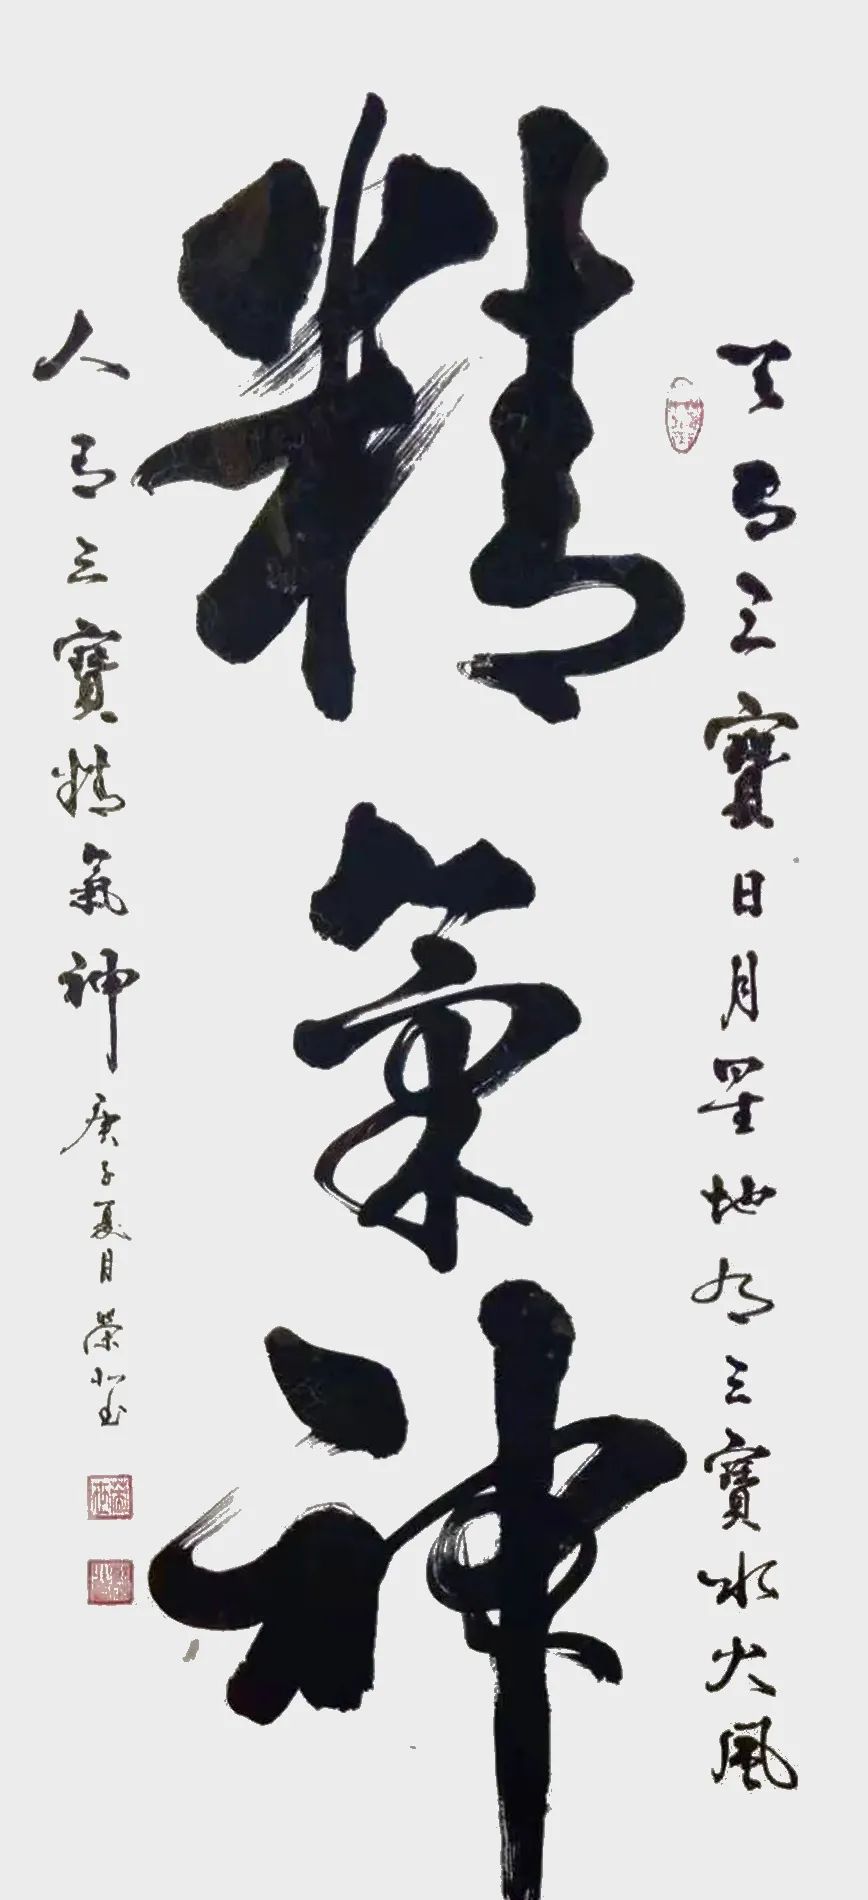 天有三寶日月星地有三寶水火風
精氣神
人有三寶精氣神庚子夏月榮